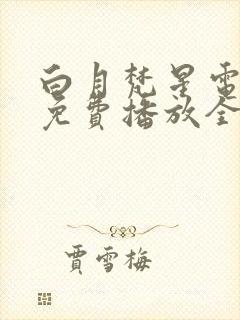 白月梵星電
免費播放全
賈雪梅